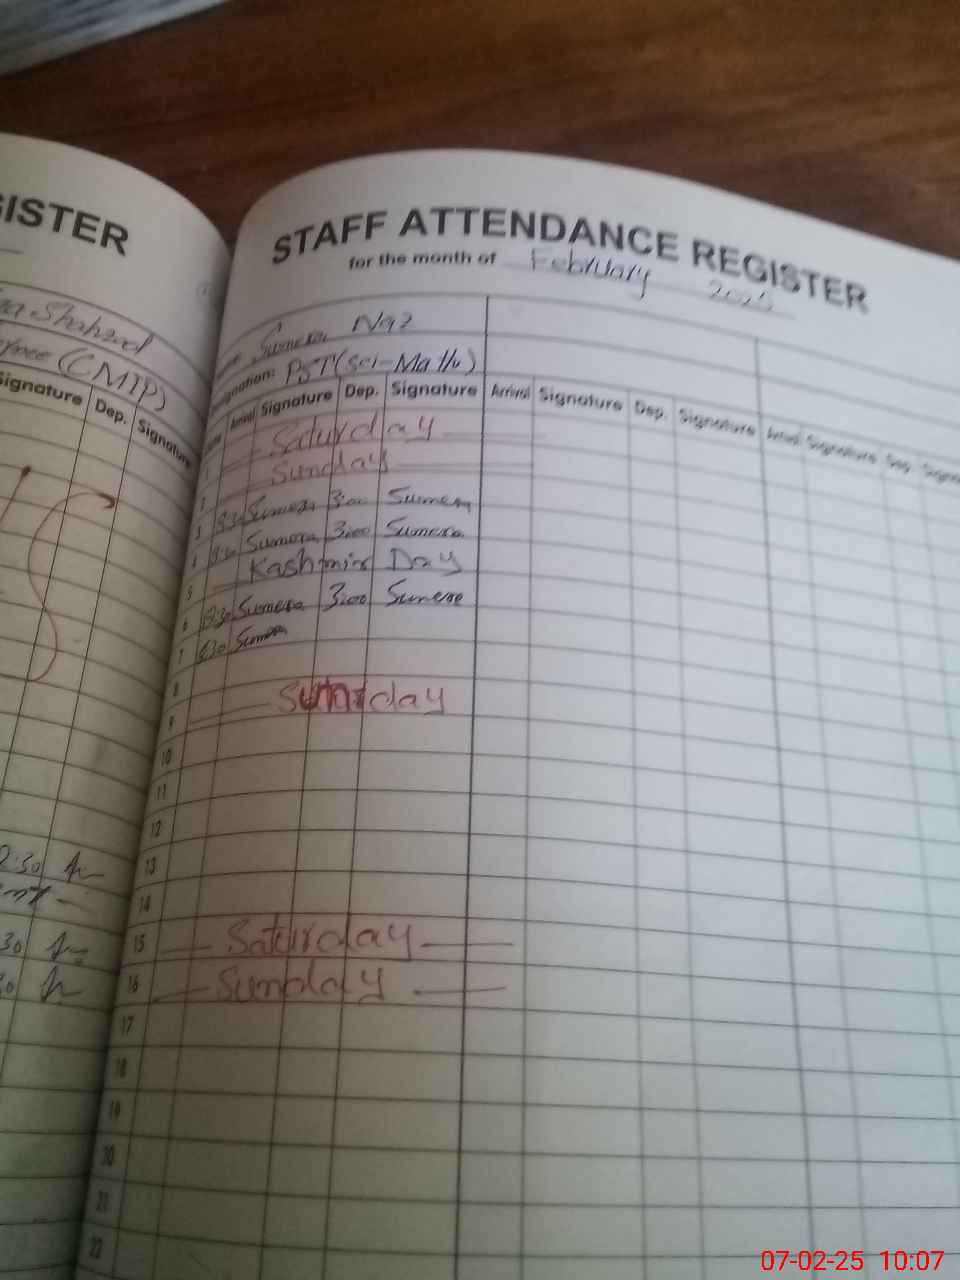 GISTER
STAFF ATTENDANCE REGISTER
for the month of February 2025
Shahzad
Sumera Naz
(CMTP)
PST (Sci-Math)
Signature Dep. Signature
Arrival Signature Dep. Signature Arrival Signature Dep. Signature Arrival Signature Dep.
1 Saturday
2 Sunday
3 Sumera 3:00 Sumera
4 Sumera 3:00 Sumera
5 Kashmir Day
6 Sumera 3:00 Sumera
7 Sumera
8
9 Sunday
10
11
12
13
2:30
14
15 Saturday
30
16 Sunday
17
18
19
20
21
22
07-02-25 10:07